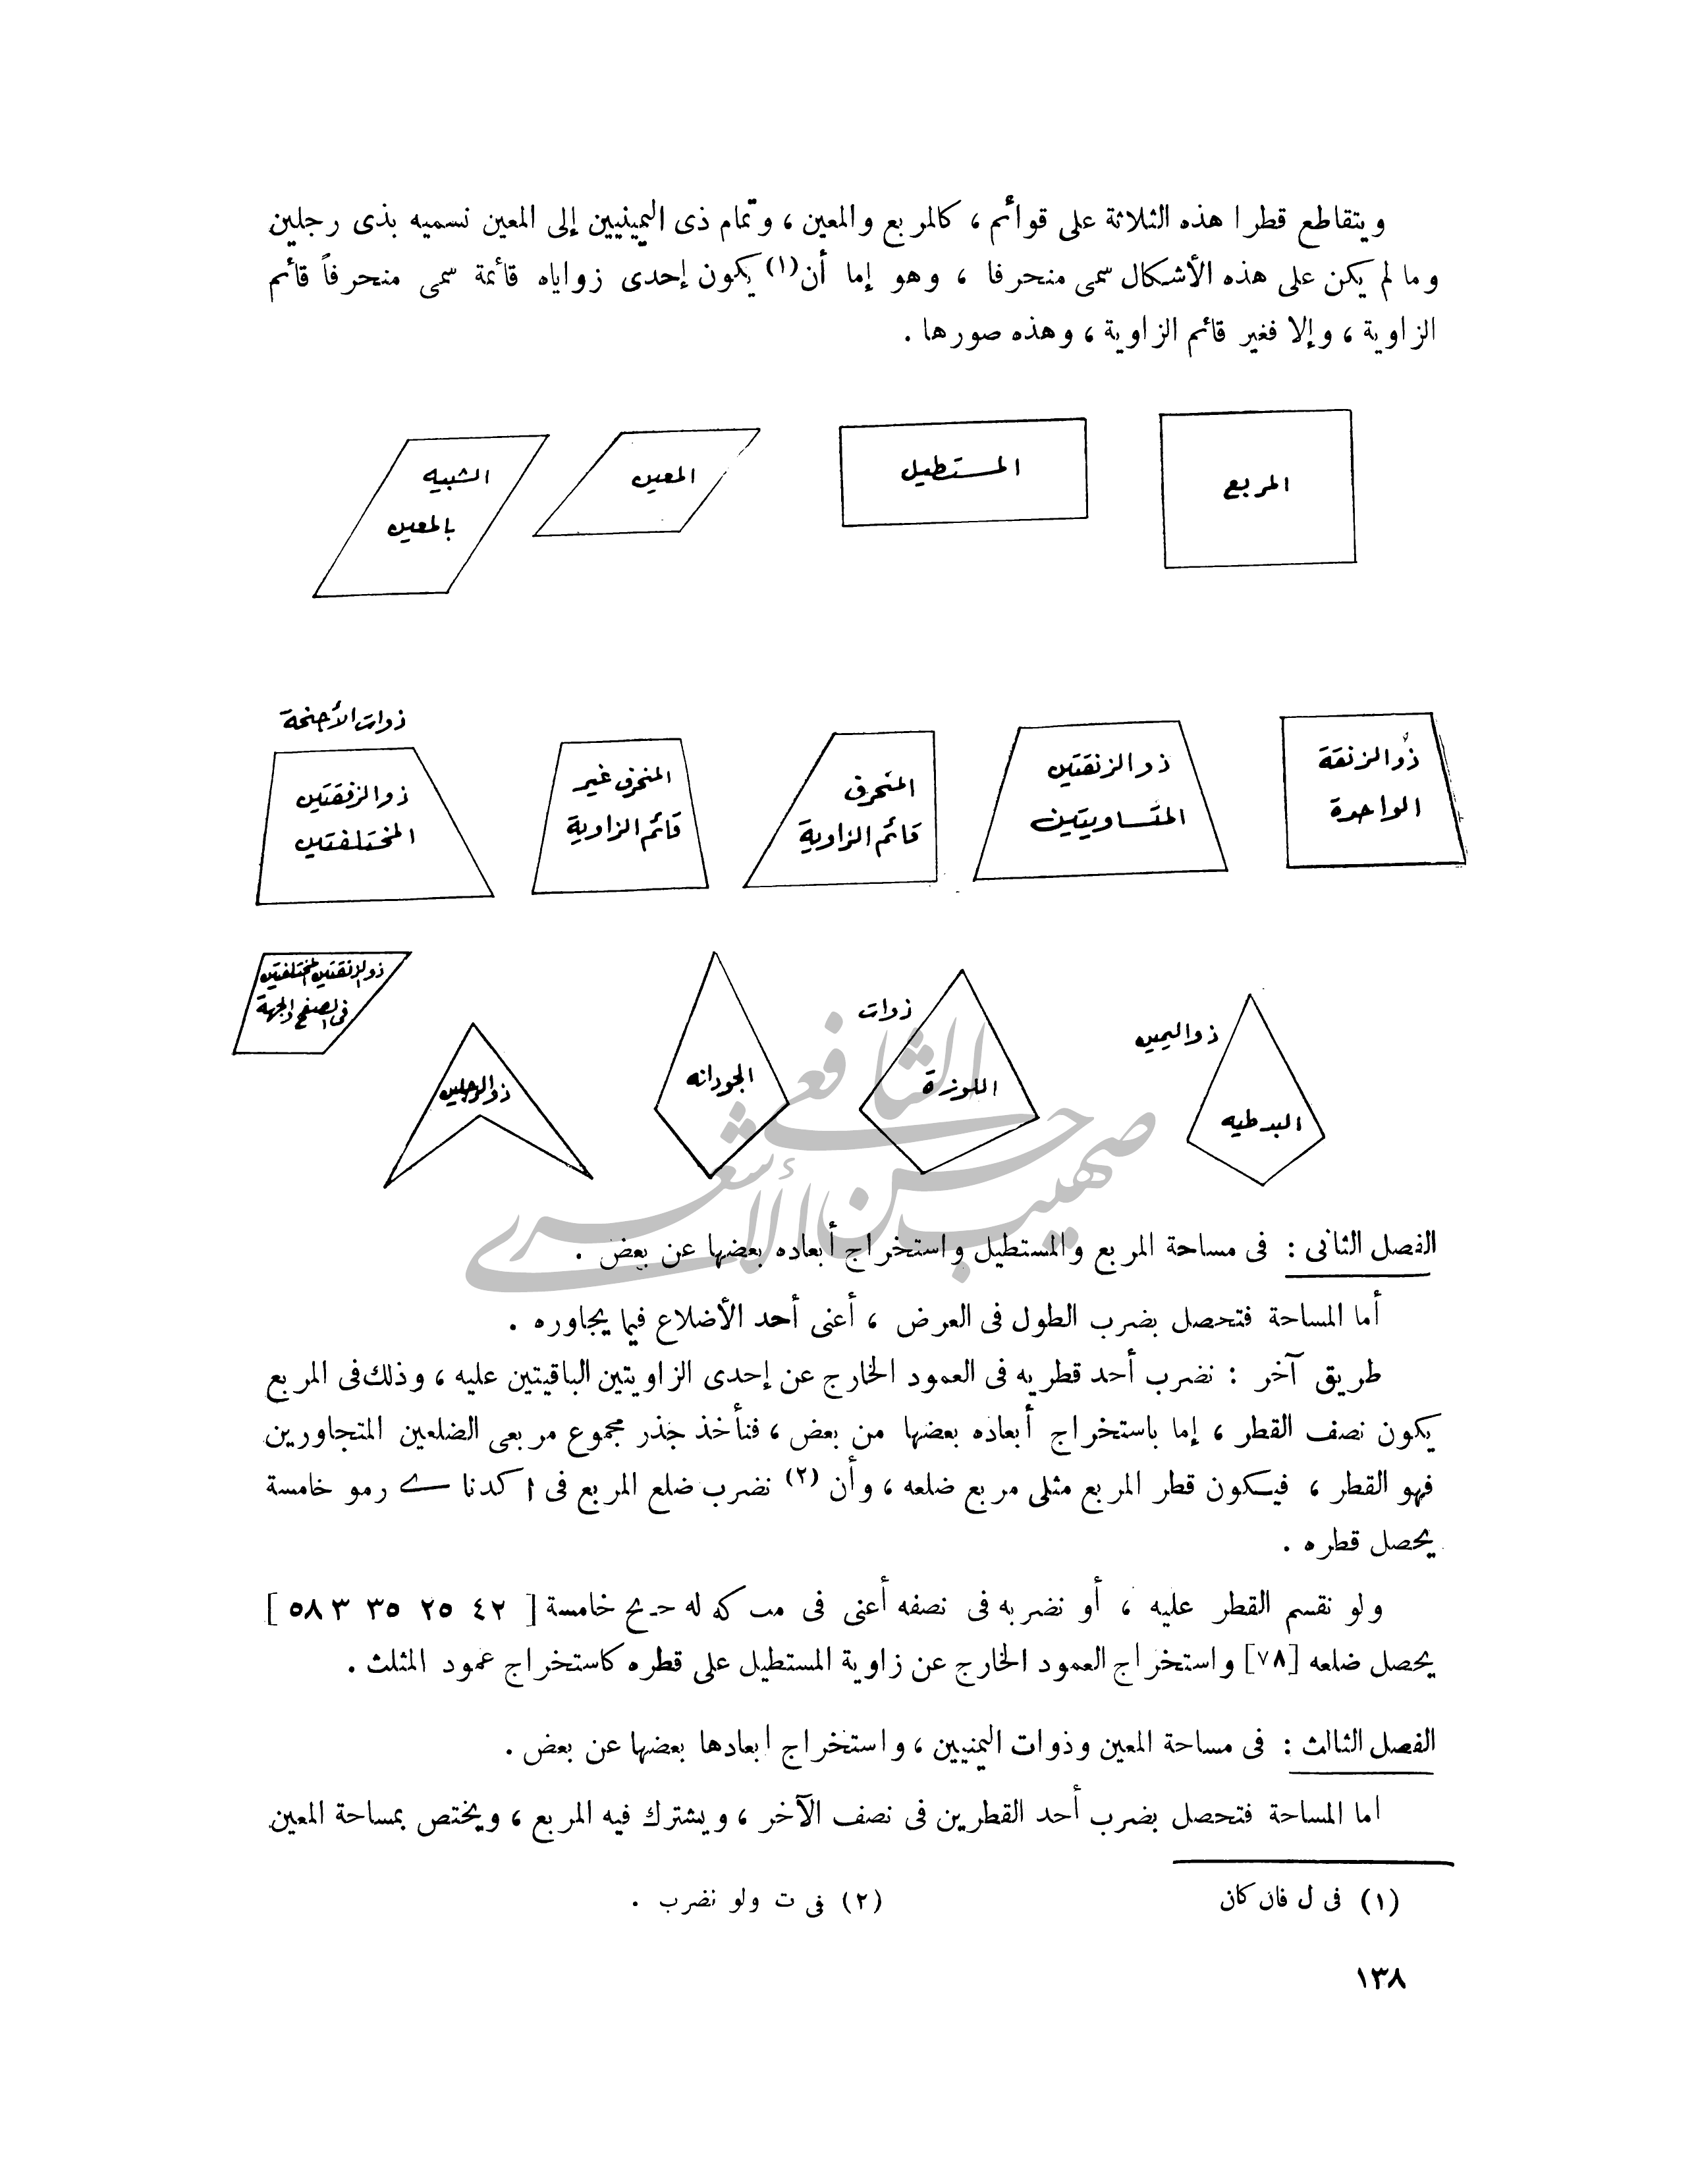 ويتقاطع قطرا هذه الثلاثة على قوائم ، كالمربع والمعين ، وتمام ذى اليمينيين إلى المعين نسميه بذى رجلين
وما لم يكن على هذه الأشكال سمى منحرفا ، وهو إما أن (١) يكون إحدى زواياه قائمة سمى منحرفاً قائم
الزاوية ، وإلا فغير قائم الزاوية ، وهذه صورها .
المربع
المستطيل
المعين
الشبيه
بالمعين
ذو الزنقة
الواحدة
ذو الزنقتين
المتساويتين
المنحرف
قائم الزاوية
المنحرف غير
قائم الزاوية
ذوات الأجنحة
ذو الزفقتين
المختلفتين
ذو اليمين
البدطيه
ذوات
اللوزة
الجودانه
ذو الرجلين
ذو الزنقتين المختلفتين
فى الصنفح والجهة
صهيب حسن الشافعي الأشعري
الفصل الثانى : فى مساحة المربع والمستطيل واستخراج أبعاده بعضها عن بعض .
أما المساحة فتحصل بضرب الطول فى العرض ، أعنى أحد الأضلاع فيما يجاوره .
طريق آخر : نضرب أحد قطريه فى العمود الخارج عن إحدى الزاويتين الباقيتين عليه ، وذلك فى المربع
يكون نصف القطر ، إما باستخراج أبعاده بعضها من بعض ، فنأخذ جذر مجموع مربعى الضلعين المتجاورين
فهو القطر ، فيكون قطر المربع مثلى مربع ضلعه ، وأن (٢) نضرب ضلع المربع فى ا كدنا ے رمو خامسة
يحصل قطره .
ولو نقسم القطر عليه ، أو نضربه فى نصفه أعنى فى مب كه له حـ يح خامسة [ ٤٢ ٢٥ ٣٥ ٣ ٥٨ ]
يحصل ضلعه [٧٨] واستخراج العمود الخارج عن زاوية المستطيل على قطره كاستخراج عمود المثلث .
الفصل الثالث : فى مساحة المعين وذوات اليمنيين ، واستخراج ابعادها بعضها عن بعض .
اما المساحة فتحصل بضرب أحد القطرين فى نصف الآخر ، ويشترك فيه المربع ، ويختص بمساحة المعين
(١) فى ل فان كان
(٢) فى ت ولو نضرب .
١٣٨